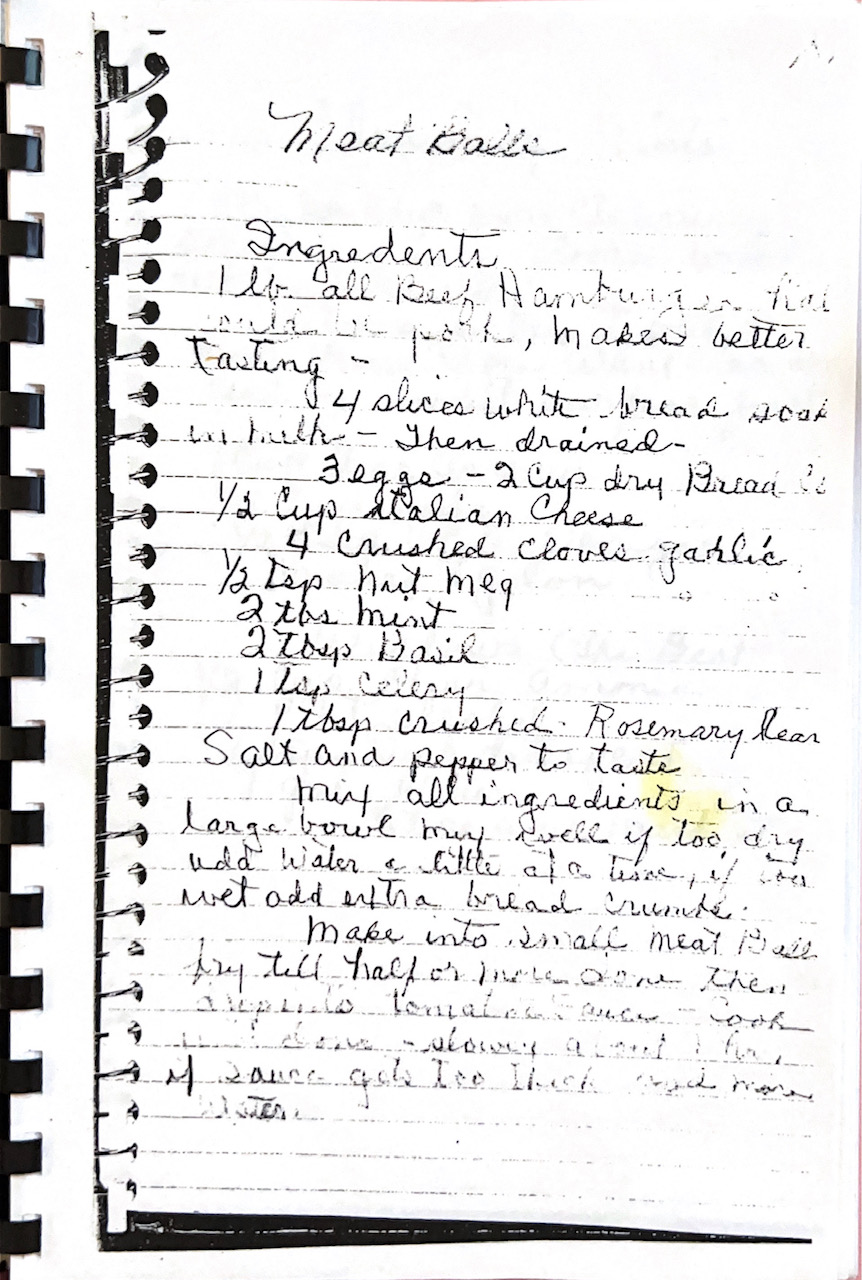 Meat Balls
Ingredents
1 lb. all Beef Hamburger
pork, makes better
tasting -
4 slices white bread soak
in milk - Then drained -
3 eggs - 2 Cup dry Bread
1/2 Cup Italian Cheese
4 crushed cloves garlic
1/2 tsp Nut Meg
2 tbs Mint
2 tbsp Basil
1 tsp Celery
1 tbsp crushed - Rosemary
Salt and pepper to taste
Mix all ingredients in a
large bowl mix well if too dry
add water a little at a time, if too
wet add extra bread crumbs.
Make into small meat Balls
fry till half or more done then
into tomatoe Sauce - Cook
done - slowly about 1 hr,
if sauce gets too thick add more
water.